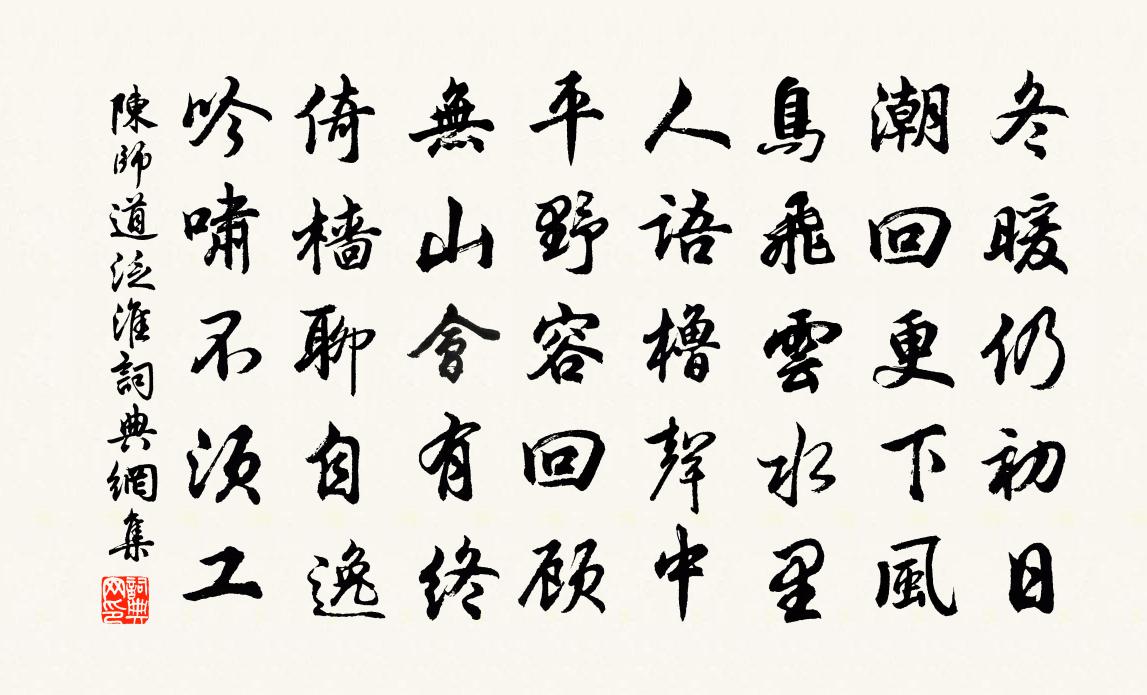 冬暖仍初日
潮回更下風
鳥飛雲水里
人語櫓聲中
平野容回顾
無山會有終
倚檣聊自逸
吟嘯不須工
陳師道泛淮詞典網集
詞典网印